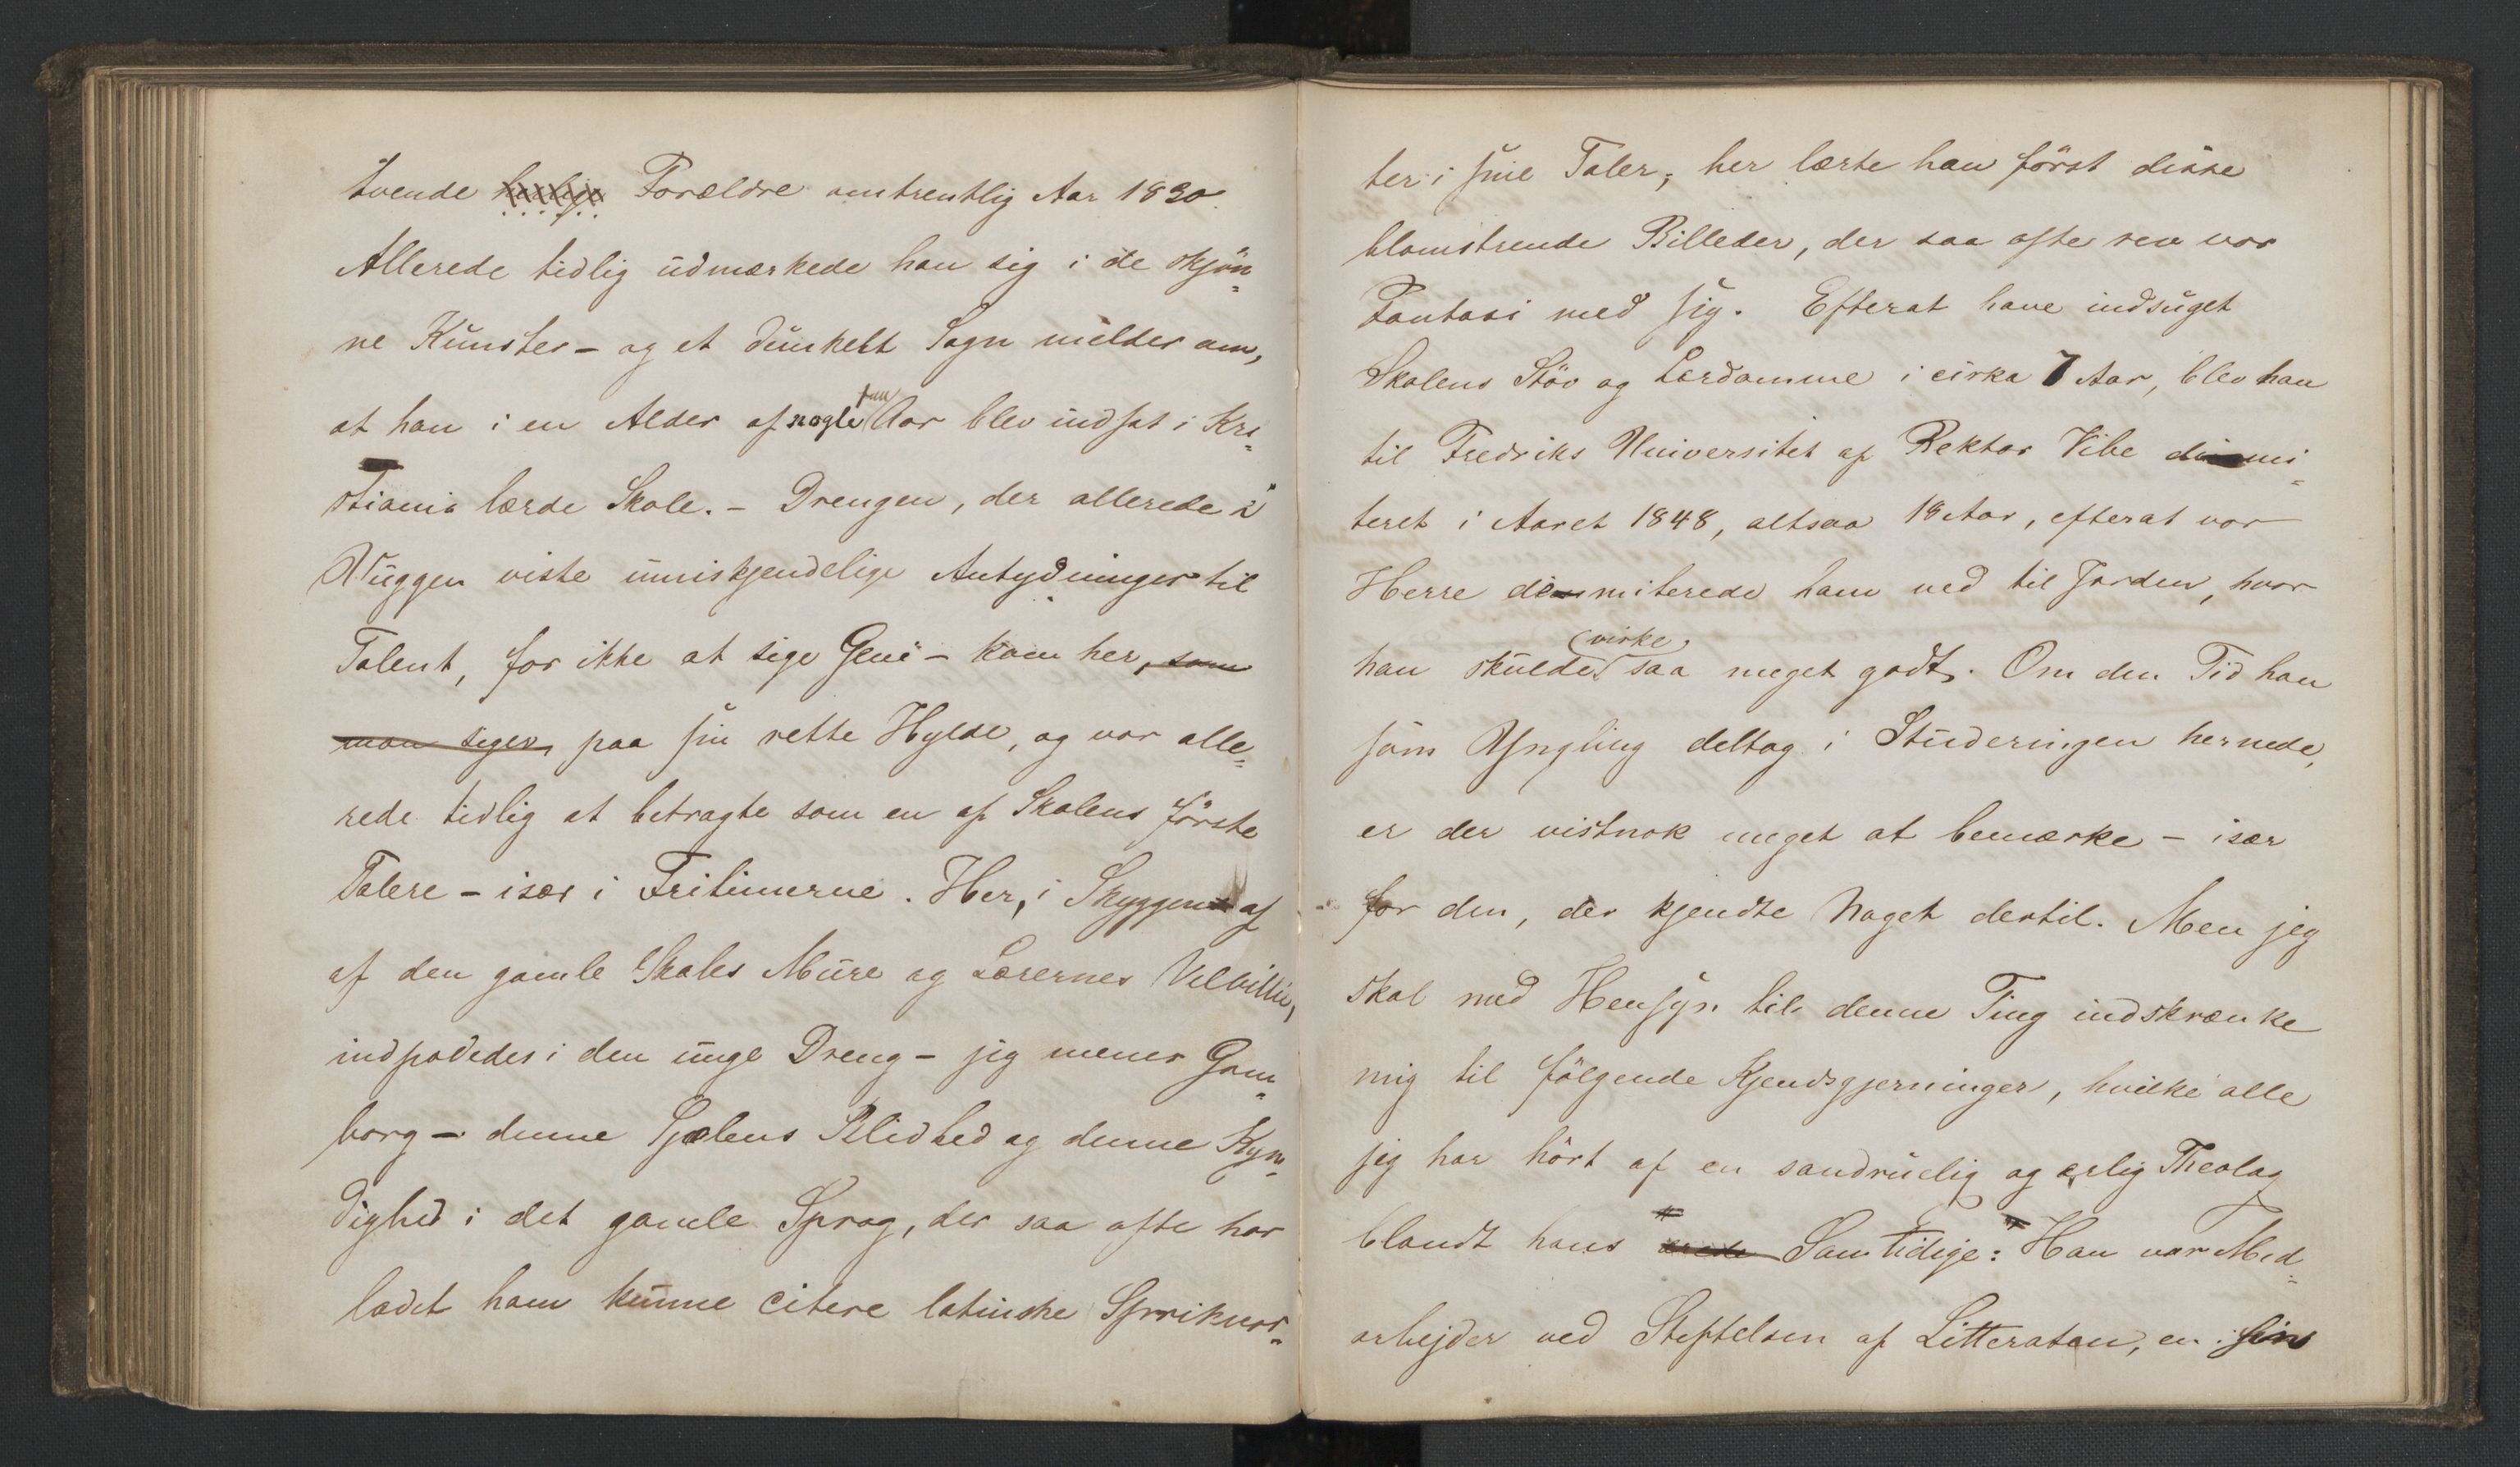 tvende herlige Forældre omtrentlig Aar 1830.
Allerede tidlig udmærkede han sig i de skjön=
ne Kunster – og et dunkelt Sagn melder om,
at han i en Alder af nogle faa Aar blev indsat i Kri=
stiania lærde Skole. – Drengen, der allerede i
Vuggen viste umiskjendelige Antydninger til
Talent, for ikke at sige Geni – kom her, som
man siger, paa sin rette Hylde, og var alle=
rede tidlig at betragte som en af Skolens förste
Talere – især i Fritimerne. Her, i Skyggen af
af den gamle Skoles Mure og Lærernes Velvillie,
indpodedes i den unge Dreng – jeg mener Gam=
borg – denne Sjælens Blidhed og denne Kyn=
dighed i det gamle Sprog, der saa ofte har
ladet ham kunne citere latinske Sprikvor=
ter i sine Taler; her lærte han först disse
blomstrende Billeder, der saa ofte rev vor
Fantasi med sig. Efterat have indsuget
Skolens Stöv og Lærdomme i cirka 7 Aar, blev han
til Fredriks Universitet af Rektor Vibe dimi=
teret i Aaret 1848, altsaa 18 Aar, efterat vor
Herre dimiterede ham ned til Jorden, hvor
han skulde virke saa meget godt. Om den Tid han
som Yngling deltog i Studeringen hernede,
er der vistnok meget at bemærke – især
for den, der kjendte Noget dertil. Men jeg
skal med Hensyn til denne Ting indskrænke
mig til fölgende Kjendsgjerninger, hvilke alle
jeg har hört af en sandruelig og ærlig Theolog
blandt hans Samtidige: Han var Med=
arbejder ved Stiftelsen af Litteraten, en i sin